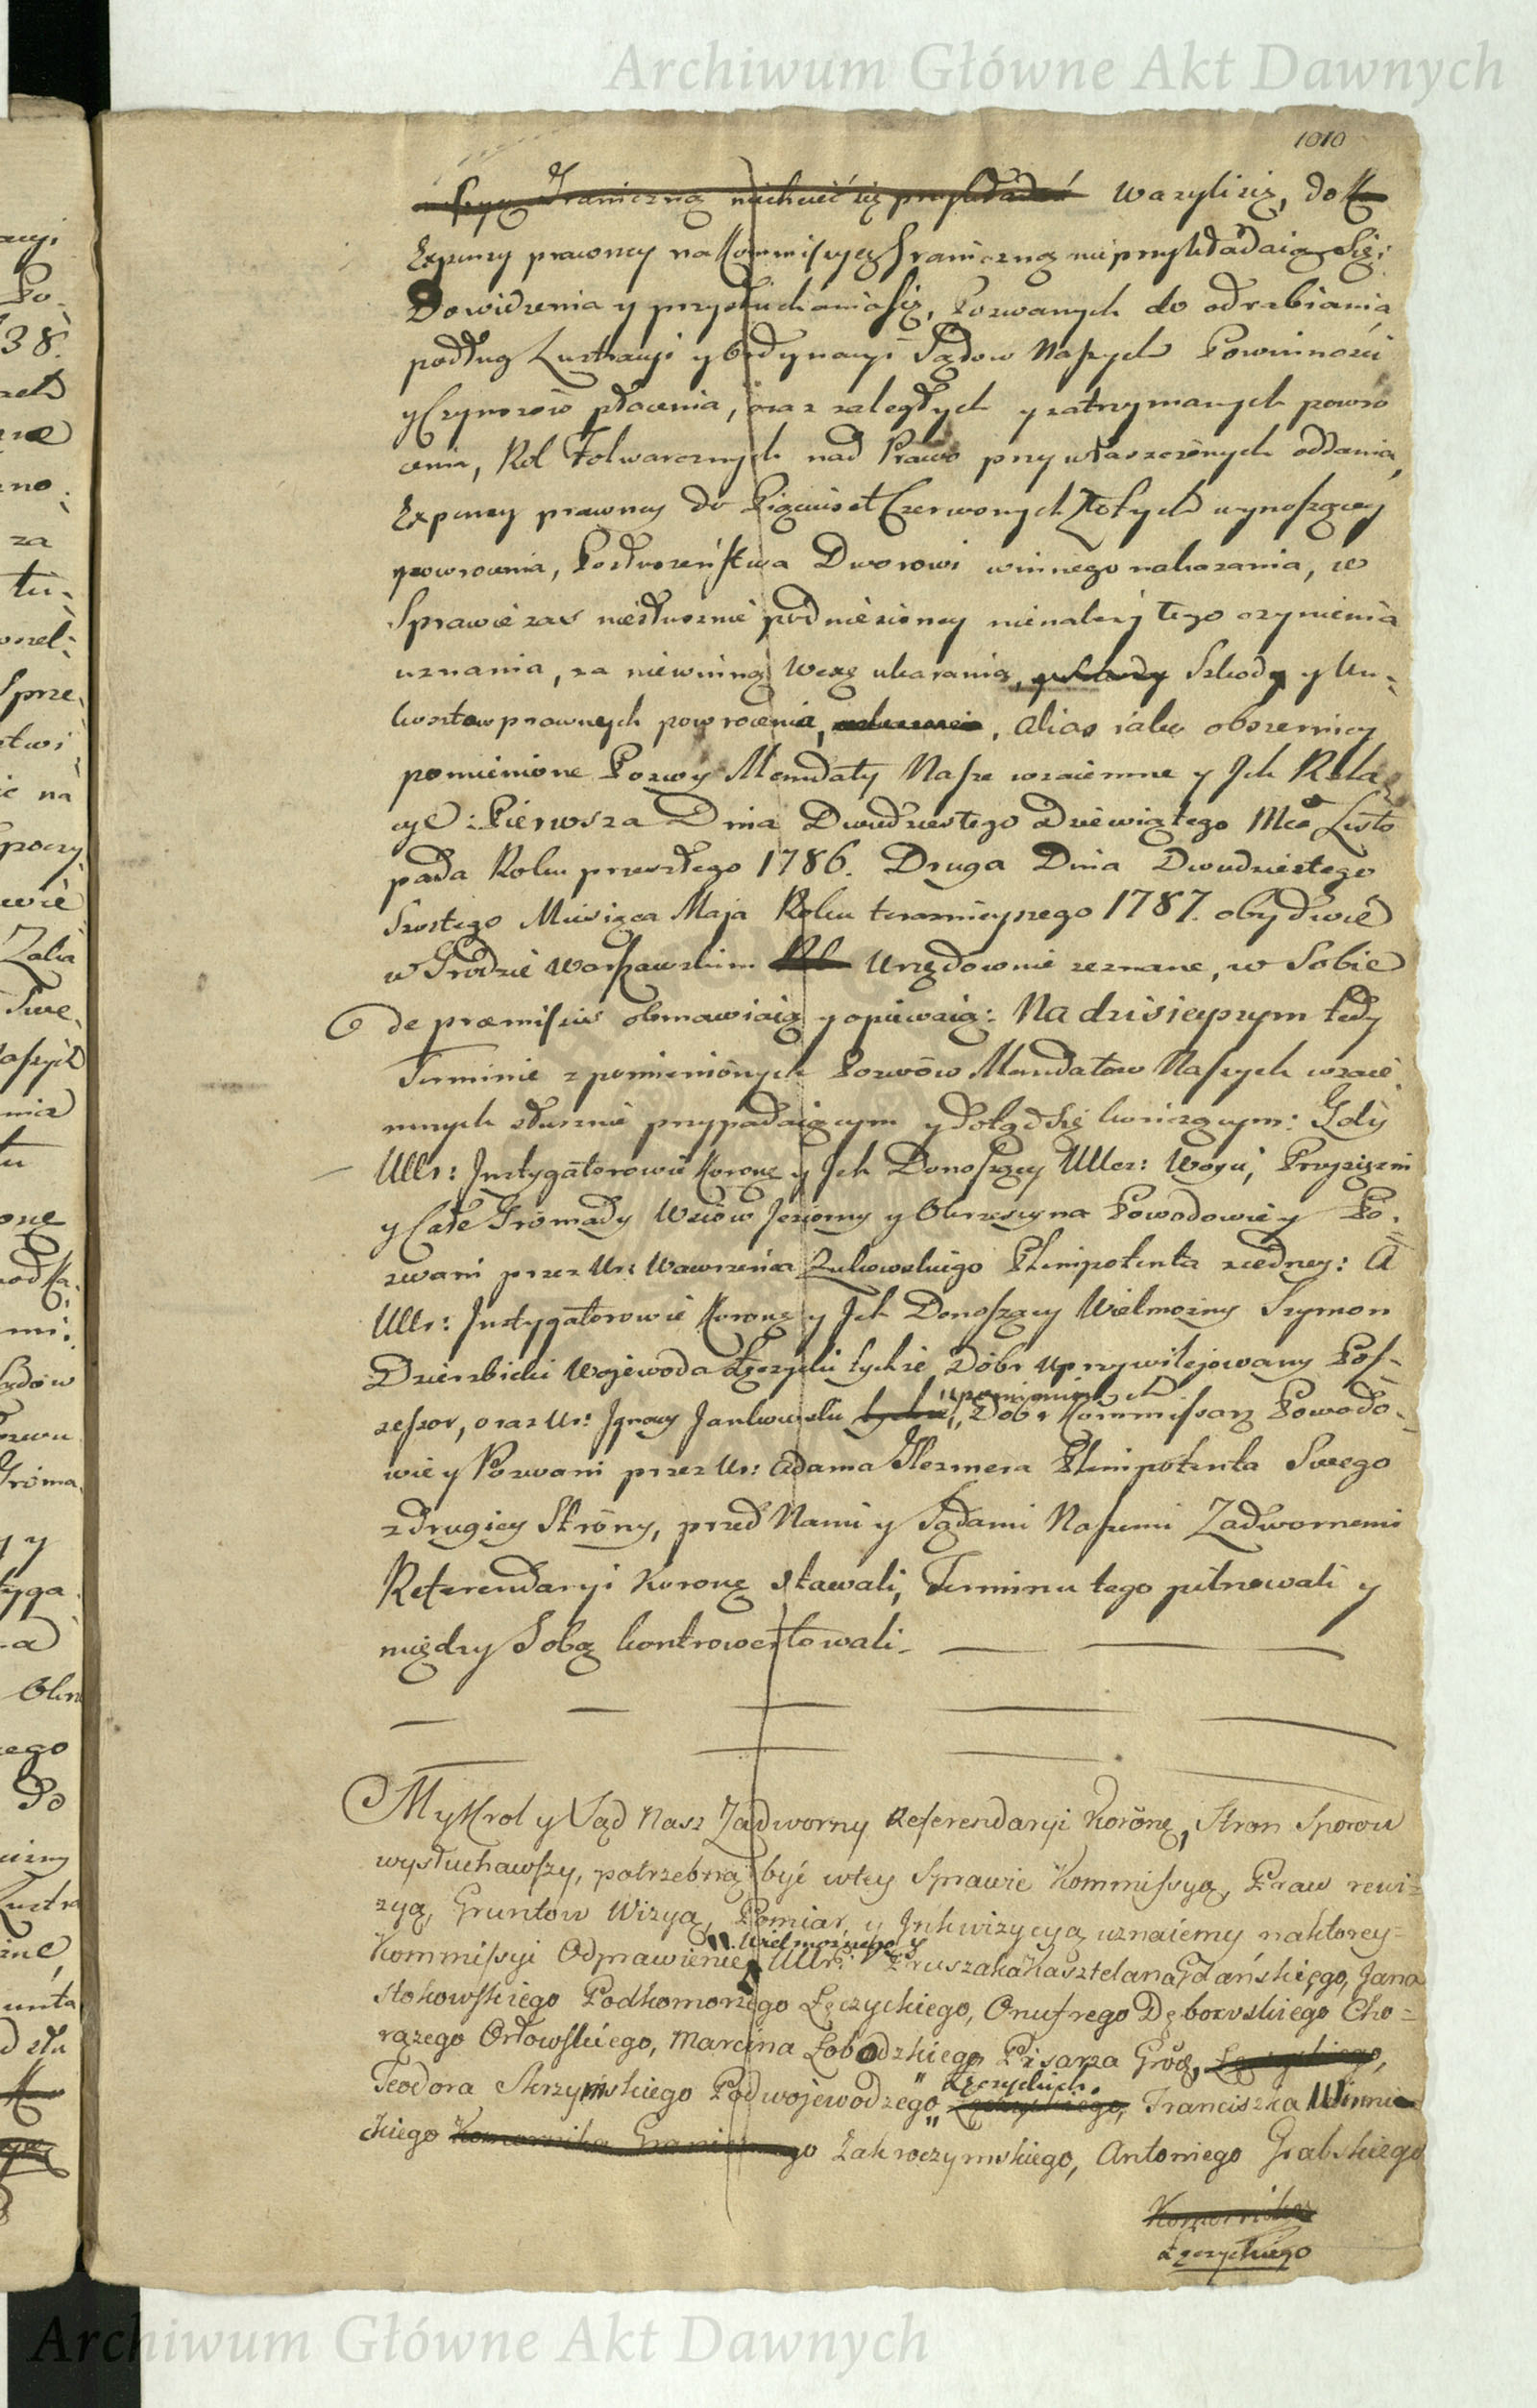 Archiwum Główne Akt Dawnych
1010
Graniczną niechcieć się przykładać ważyli się, do
Expensy prawney na Kommissyę Graniczną nieprzykładaią się;
Dowidzenia y przysłuchania się, Pozwanych do odrabiania
podług Lustracyi y Ordynacyi Sądow Naszych Powinności
y Czynszow płacenia, oraz zaległych y zatrzymanych powró
cenia, Rol Folwarcznych nad Prawo przywłaszczonych oddania,
Expensy prawney do Pięciuset Czerwonych Złotych wynoszącey
powrocenia, Posłuszeństwa Dworowi winnego nakazania, w
Sprawie zas niesłusznie podniesioney nienależytego czynienia
uznania, za niewinną Wezę ukarania, Szkody y Un-
kosztow prawnych powrocenia, alias iako obszerniey
pomienione Pozwy Mandaty Nasze wzaiemne y Jch Rela
cye: Pierwsza Dnia Dwudziestego Dziewiątego Mca Listo
pada Roku przeszłego 1786. Druga Dnia Dwudziestego
Szostego Miesiąca Maja Roku teraznieyszego 1787. obydwie
w Grodzie Warszawskim Urzędownie zeznane, w Sobie
de praemissis obmawiaią y opiewaią: Na dzisieyszym tedy
Terminie z pomienionych Pozwów Mandatow Naszych wzaie
mnych słusznie przypadaiącym y dotąd się kończącym: Gdy
UUr: Jnstygatorowie Koronę y Jch Donoszący UUcz: Woyci, Przysiężni
y Całe Gromady Wsiów Jeziorny y Obrzeszyna Powodowie y Po-
zwani przez Ur: Wawrzeńca Żukowskiego Plenipotenta z iedney: A
UUr: Jnstygatorowie Koronę y Jch Donoszący Wielmożny Szymon
Dzierzbicki Wojewoda Łęczycki tychże Dóbr Uprzywilejowany Pos-
upomnionych
sessor, oraz Ur: Jgnacy Jankowski tychże, Dóbr Kommissarz Powodo-
wie y Pozwani przez Ur: Adama Glezmera Plenipotenta Swego
z drugiey Strony, przed Nami y Sądami Naszemi Zadwornemi
Referendaryi Koronę stawali, Terminu tego pilnowali y
między Sobą kontrowertowali.
My Krol y Sąd Nasz Zadworny Referendaryi Koronę, Stron Sporow
wysłuchawszy, potrzebną być wtey Sprawie Kommissyą, Praw rewi-
zyą, Gruntow Wizyą, Pomiar, y Jnkwizycyą uznaiemy na ktorey-
Wielmożnego y
Kommissyi Odprawienie UUr: Pruszaka Kasztelana Gdańskiego, Jana
Stokowskiego Podkomorzego Łęczyckiego, Onufrego Dęborskiego Cho-
rążego Orłowskiego, Marcina Łobodzkiego Pisarza Grodz, Łęczyckiego,
Łęczyckich,
Teodora Skrzyńskiego Podwojewodzego Łęczyckiego, Franciszka Winnic
kiego Komornika Granicznego Zakroczymskiego, Antoniego Grabskiego
Komornika
Łęczyckiego
Archiwum Główne Akt Dawnych